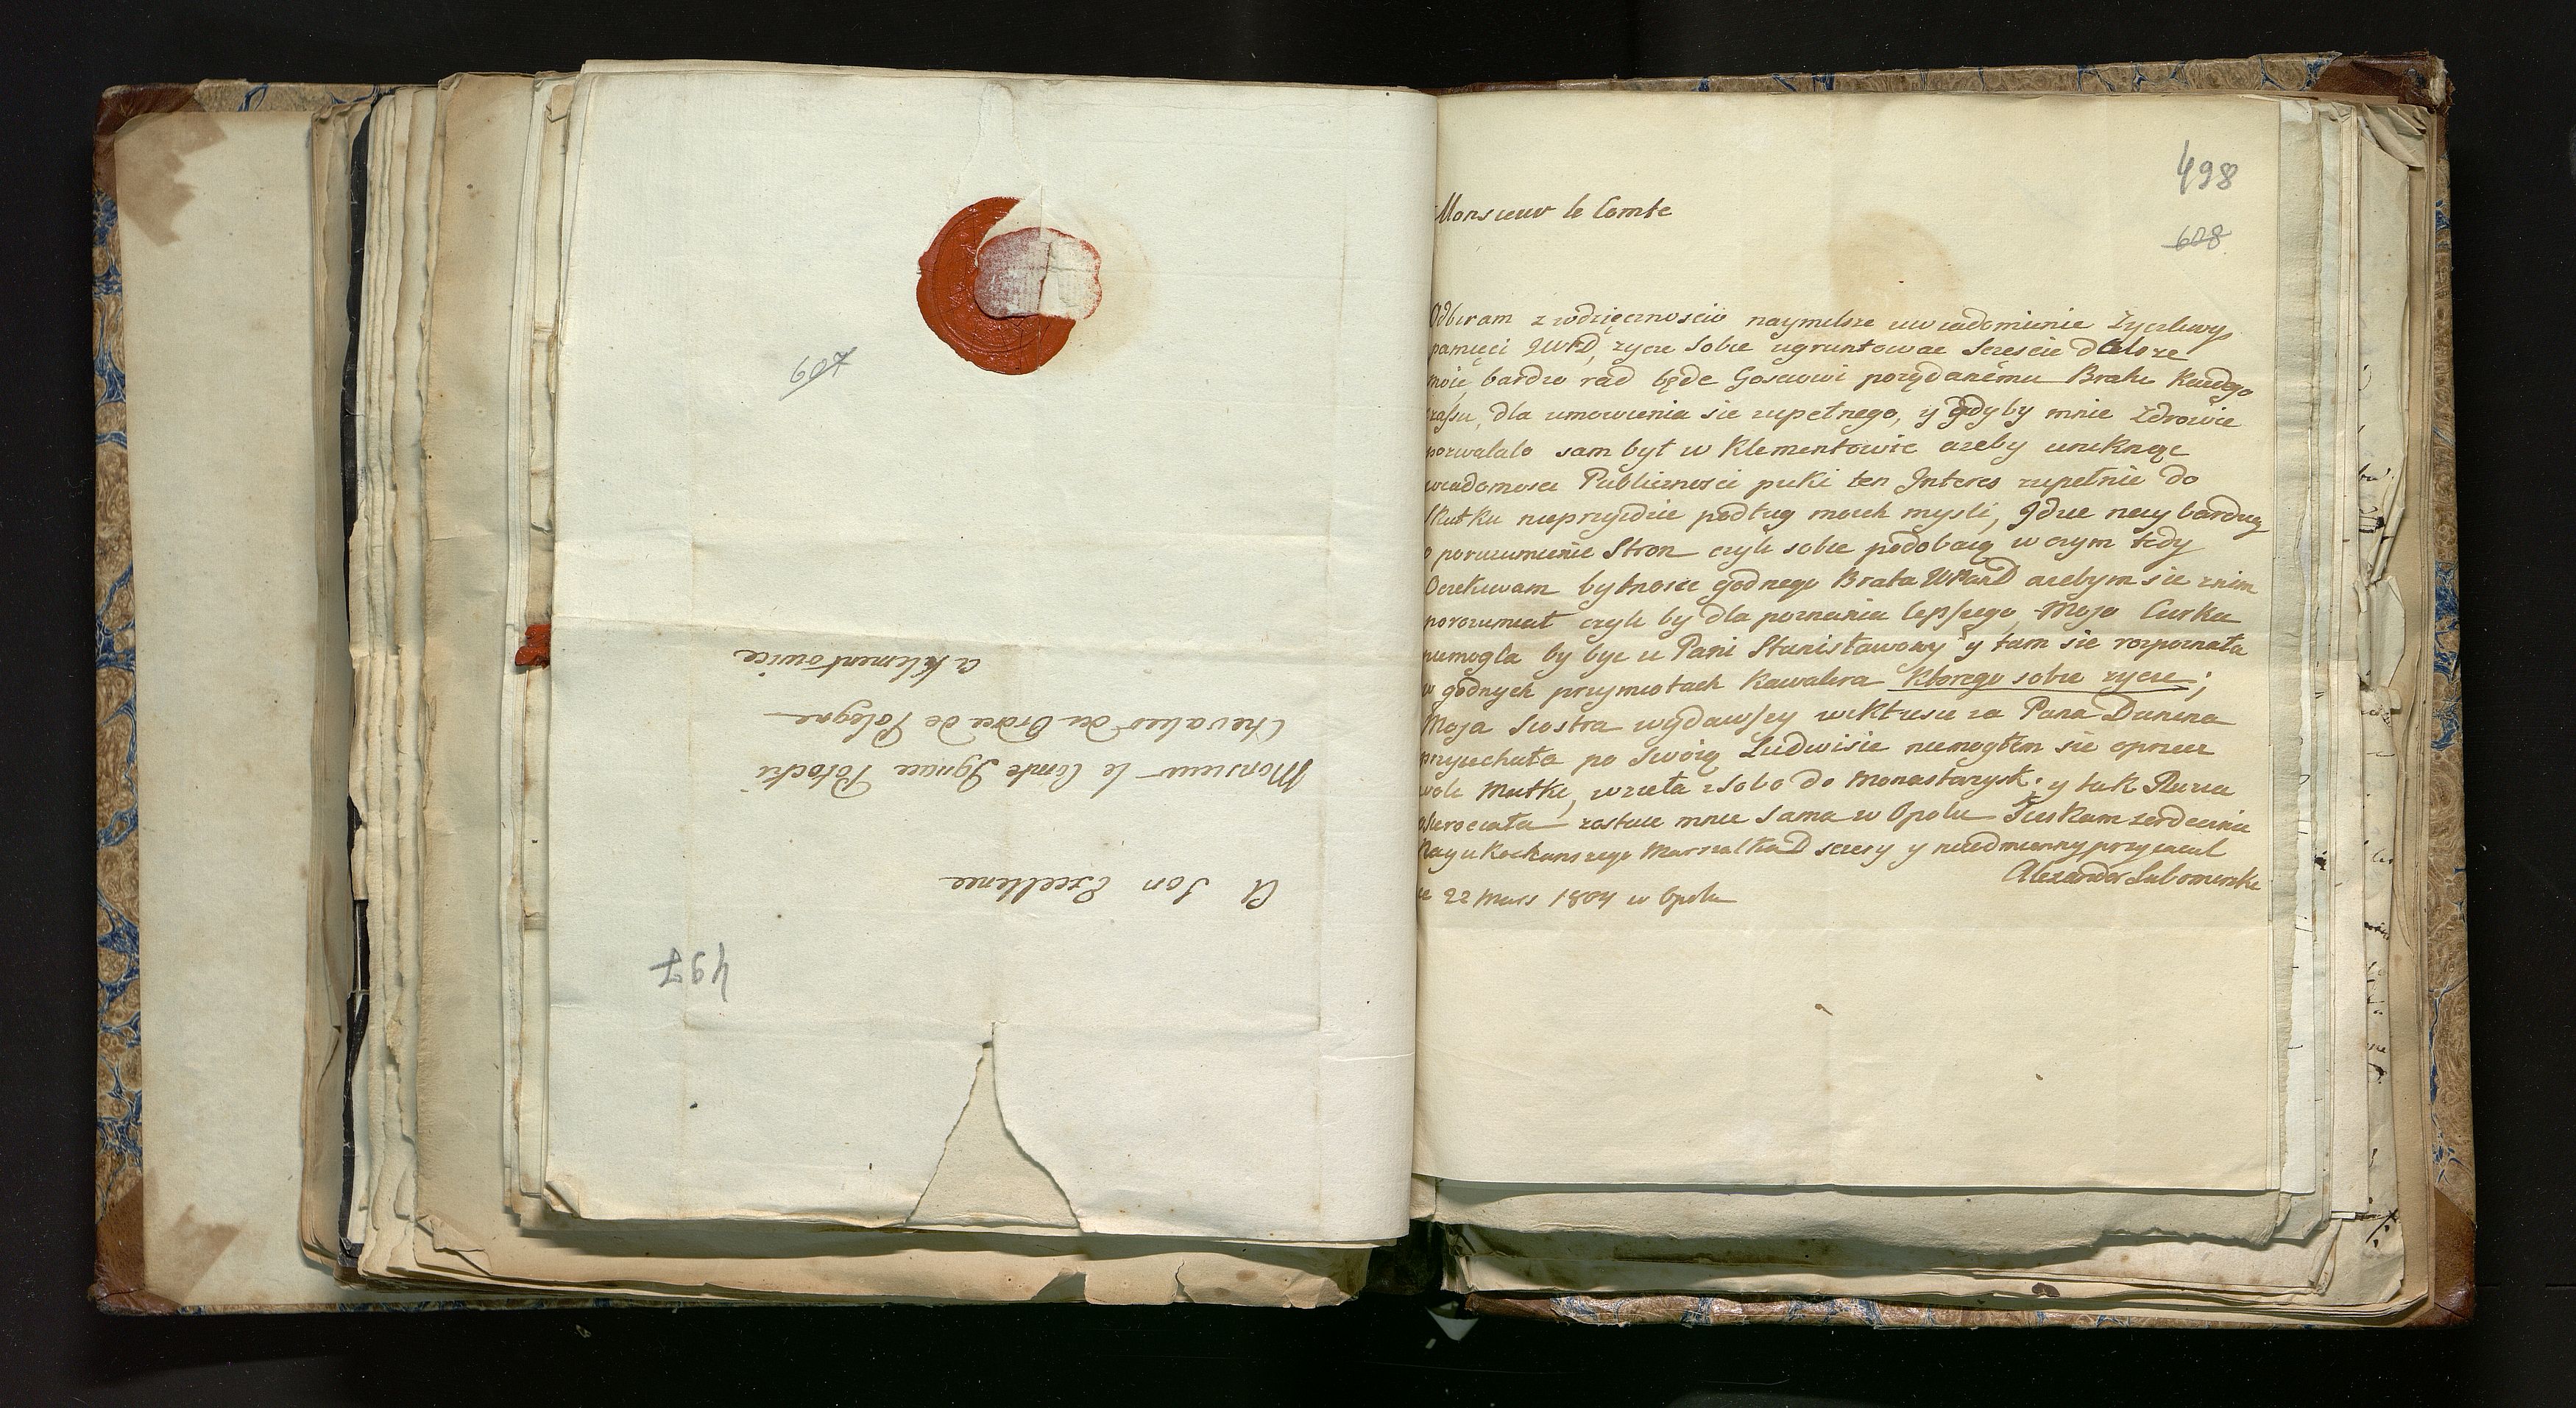 607
a Klementowice
Chevalier des Ordres de Pologne
Monsieur le Comte Ignace Potocki
A Son Excellence
497
498
608
Monsieur le Comte
Odbiram z wdzięcznoscio naymilsze uwiadomienie Zyczliwy
pamięci JWPD, zycze sobie ugruntowac Szczescie
moie, bardzo rad będe Gosciowi pożądanému Bratu Każdego
czassu, dla umowienia sie zupełnego, y gdyby mnie Zdrowie
pozwalalo sam był w Klementowic azeby uniknąc
wiadomosci Publicznosci puki ten Interes zupełnie do
Skutku nieprzyidzie podług moich mysli, Idzie nay bardzy
o porozumienie Stron czyli sobie podobaią w czym tedy
Oczekiwam bytnosci godnego Brata WPanD azebym sie znim
porozumiał czyli by dla poznania lepszego Moja Curka
niemogla by byc u Pani Stanisławowy y tam sie rozpoznała
w godnych przymiotach Kawalera Ktorego sobie zycze;
Moja Siostra wydawszy za Pana Dunina
przyiechała po Swoią Ludwisie niemogłem sie oprzec
woli Matki, wzieła zsobo do Monastarzysk; y tak Ruzia
osierociała zostaie mnie Sama w Opolu Sciskam serdecznie
Nayukochanszego MarszalkaD sczery y nieodmienny przyiaciel
Alexander Lubomirski
ce 22 Mars 1804 w Opolu